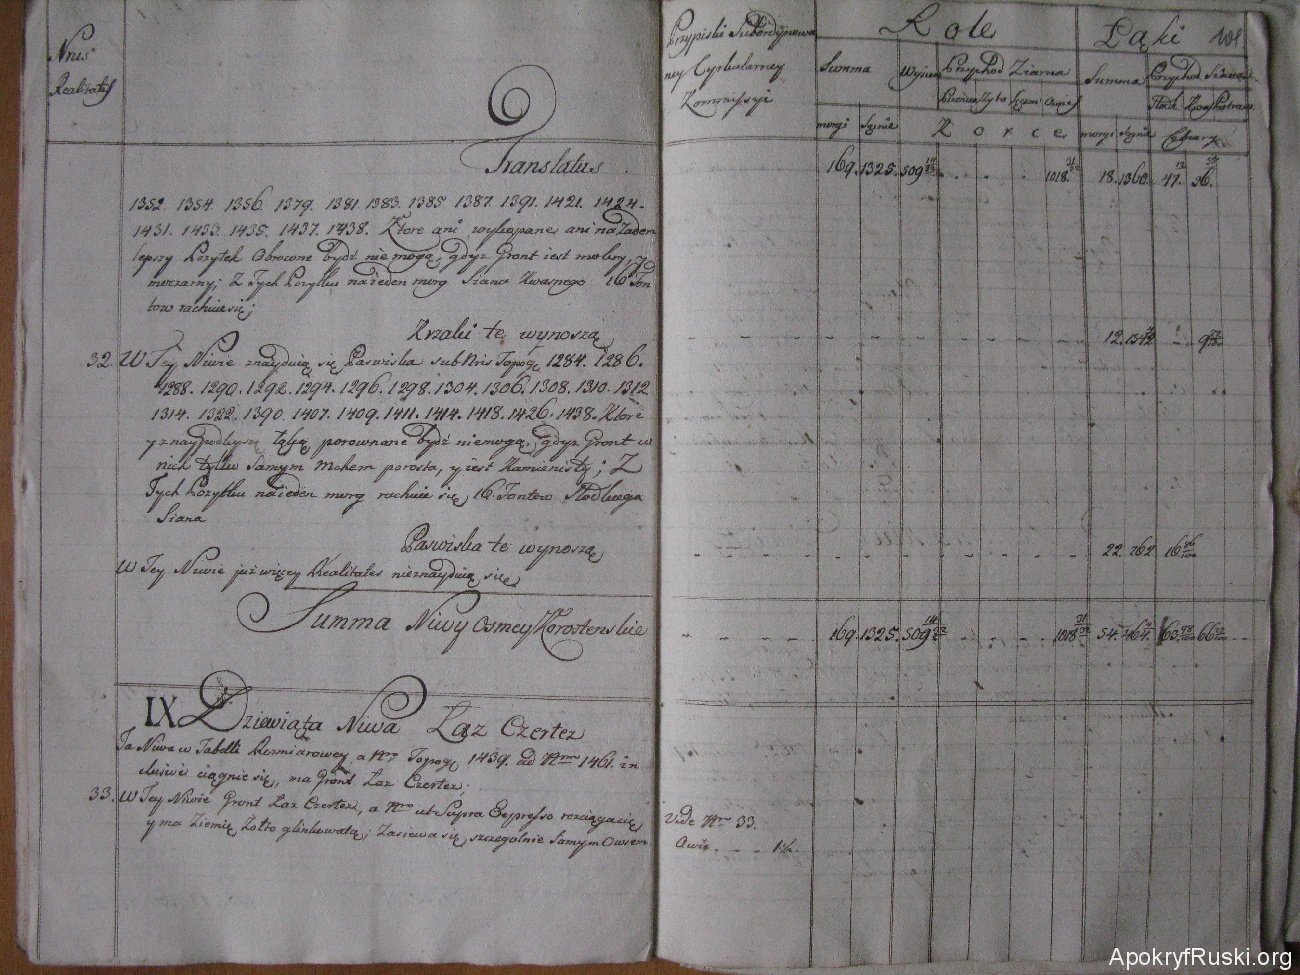 Nrus
Realitatis
Translatus
1352. 1354. 1356. 1379. 1381. 1383. 1385. 1387. 1391. 1421. 1424.
1431. 1433. 1435. 1437. 1438. Które ani wykopane ani na żaden
lepszy Pożytek Obrocone bydź nie mogą, gdyż Gront iest mokry, y
; Z Tych Pożytku na ieden morg Siana Kwasnego 16 Fon
tow rachuie się;
Krzaki te wynoszą
32. W Tey Niwie znayduią się Paswiska sub Nris Topog. 1284. 1286.
1288. 1290. 1292. 1294. 1296. 1298. 1304. 1306. 1308. 1310. 1312.
1314. 1322. 1390. 1407. 1409. 1411. 1414. 1418. 1426. 1438. Które
y z naypodleyszą łąką porownane bydź niemogą, gdyż Gront w
nich tylko samym Mchem porosta, y iest Kamienisty; Z
Tych Pożytku na ieden morg rachuie się 16. Fontow Słodkiego
Siana
Paswiska te wynoszą
W Tey Niwie już więcey Realitates nieznayduią się
Summa Niwy Osmey Korostenskie
IX Dziewiąta Niwa Łaz Czertez
Ta Niwa w Tabelli Rozmiarowey a Nro Topog. 1439. ad Nrum 1461. in
clusive ciągnie się, ma Gront Łaz Czertez;
33. W Tey Niwie Gront Łaz Czertez, a Nro ut Supra Expresso rozciągaiący
y ma Ziemię Żołto glinkowatą; Zasiewa się szczegolnie samym Owsem
Przypiski Subordynowa
ney Cyrkularney
Kommissyi
Role
Łąki
101
Summa
Wysiew
Przychod Ziarna
Summa
Przychod Siana
Żyto
Owies
Potraw
morgi
Sążnie
Korce
morgi
Sążnie
Cetnary
169. 1325. 509 1018. 18. 1360. 47. 56.
12.
22. 262. 16
169. 1325. 509 1018 54. 63. 66
Vide Nrum 33.
Owie
ApokryfRuski.org